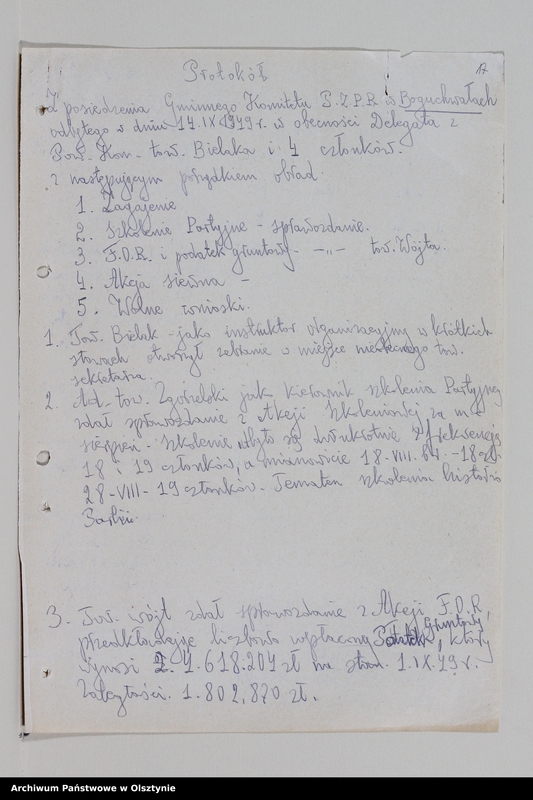 Protokół
Z posiedzenia Gminnego Komitetu P.Z.P.R w Boguchwałach
odbytego w dniu 14.IX 1949 r. w obecności Delegata z
Pow. Kom. tow. Bielaka i 4 członków.
z następującym porządkiem obrad.
1. Zagajenie
2. Szkolenie Partyjne - sprawozdanie.
3. F.O.R. i podatek gruntowy - -„- tow. Wójta.
4. Akcja siewna -
5. Wolne wnioski.
1. Tow. Bielak - jako instruktor organizacyjny w krótkich
słowach otworzył zebranie w miejsce tow.
sekretarza.
2. Ad. tow. Zgorzelski jak kierownik szkolenia Partyjnego
zdał sprawozdanie z Akcji Szkoleniowej za m-c
sierpień. Szkolenie odbyło się dwukrotnie z frekwencją
18 i 19 członków, a mianowicie 18-VIII. - 18 czł.
28-VIII- 19 członków. Tematem szkolenia historia
Partii.
3. Tow. wójt zdał sprawozdanie z Akcji F.O.R.
przedkładając liczbowo wpłacony Podatek Gruntowy, który
wynosi 4.618.204 zł na 1.IX.49 r.
Zaległości. 1.802,820 zł.
A
Archiwum Państwowe w Olsztynie